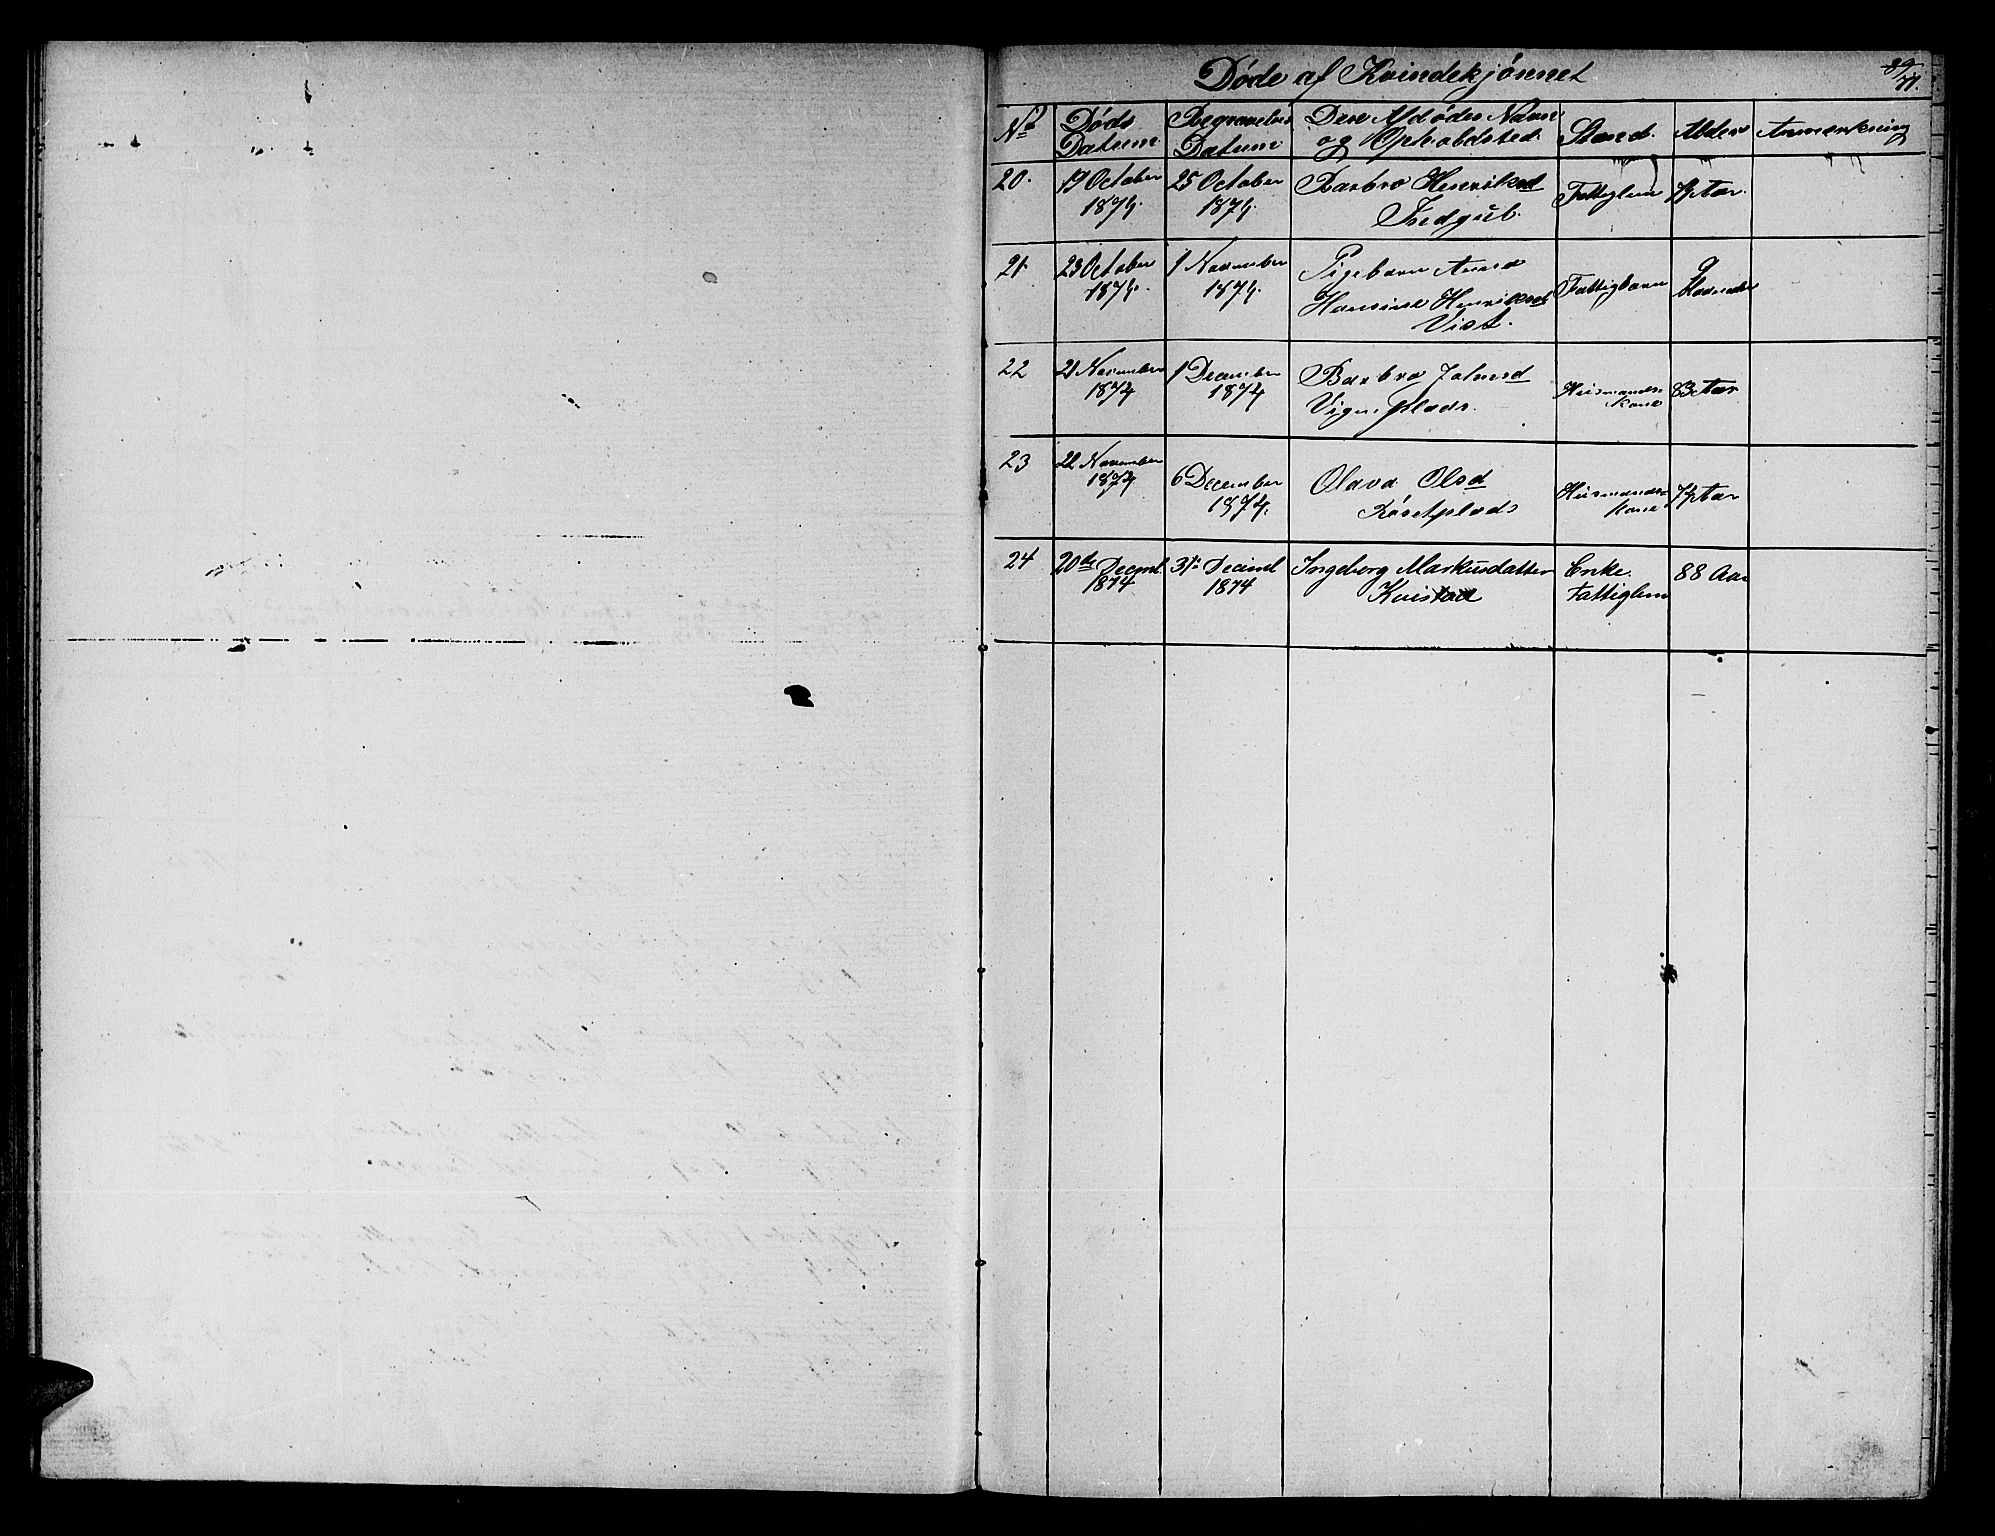 Døde af Kvindekjønnet
89/77.
No Døds Datum Begravelses Datum Den Afdødes Navn og Opholdsted. Stand. Alder Anmærkning
20. 19 October 1874. 25 October 1874. Barbro Henriksd Fattiglem Aar.
21. 23 October 1874. 1 November 1874. Pigebarn Anna Hansine Henriksd Vist. Fattigbarn 9 Maaneder
22 21 November 1874 1 December 1874 Barbro Johnsd plads. Husmands kone 83 Aar
23 22 November 1874 6 December 1874. Olava Olsd Røsetplads Husmands= kone 74 Aar
24 20de Decemb 1874 31te Decemb 1874 Ingeborg Markusdatter Kvistad Enke. Fattiglem 88 Aar